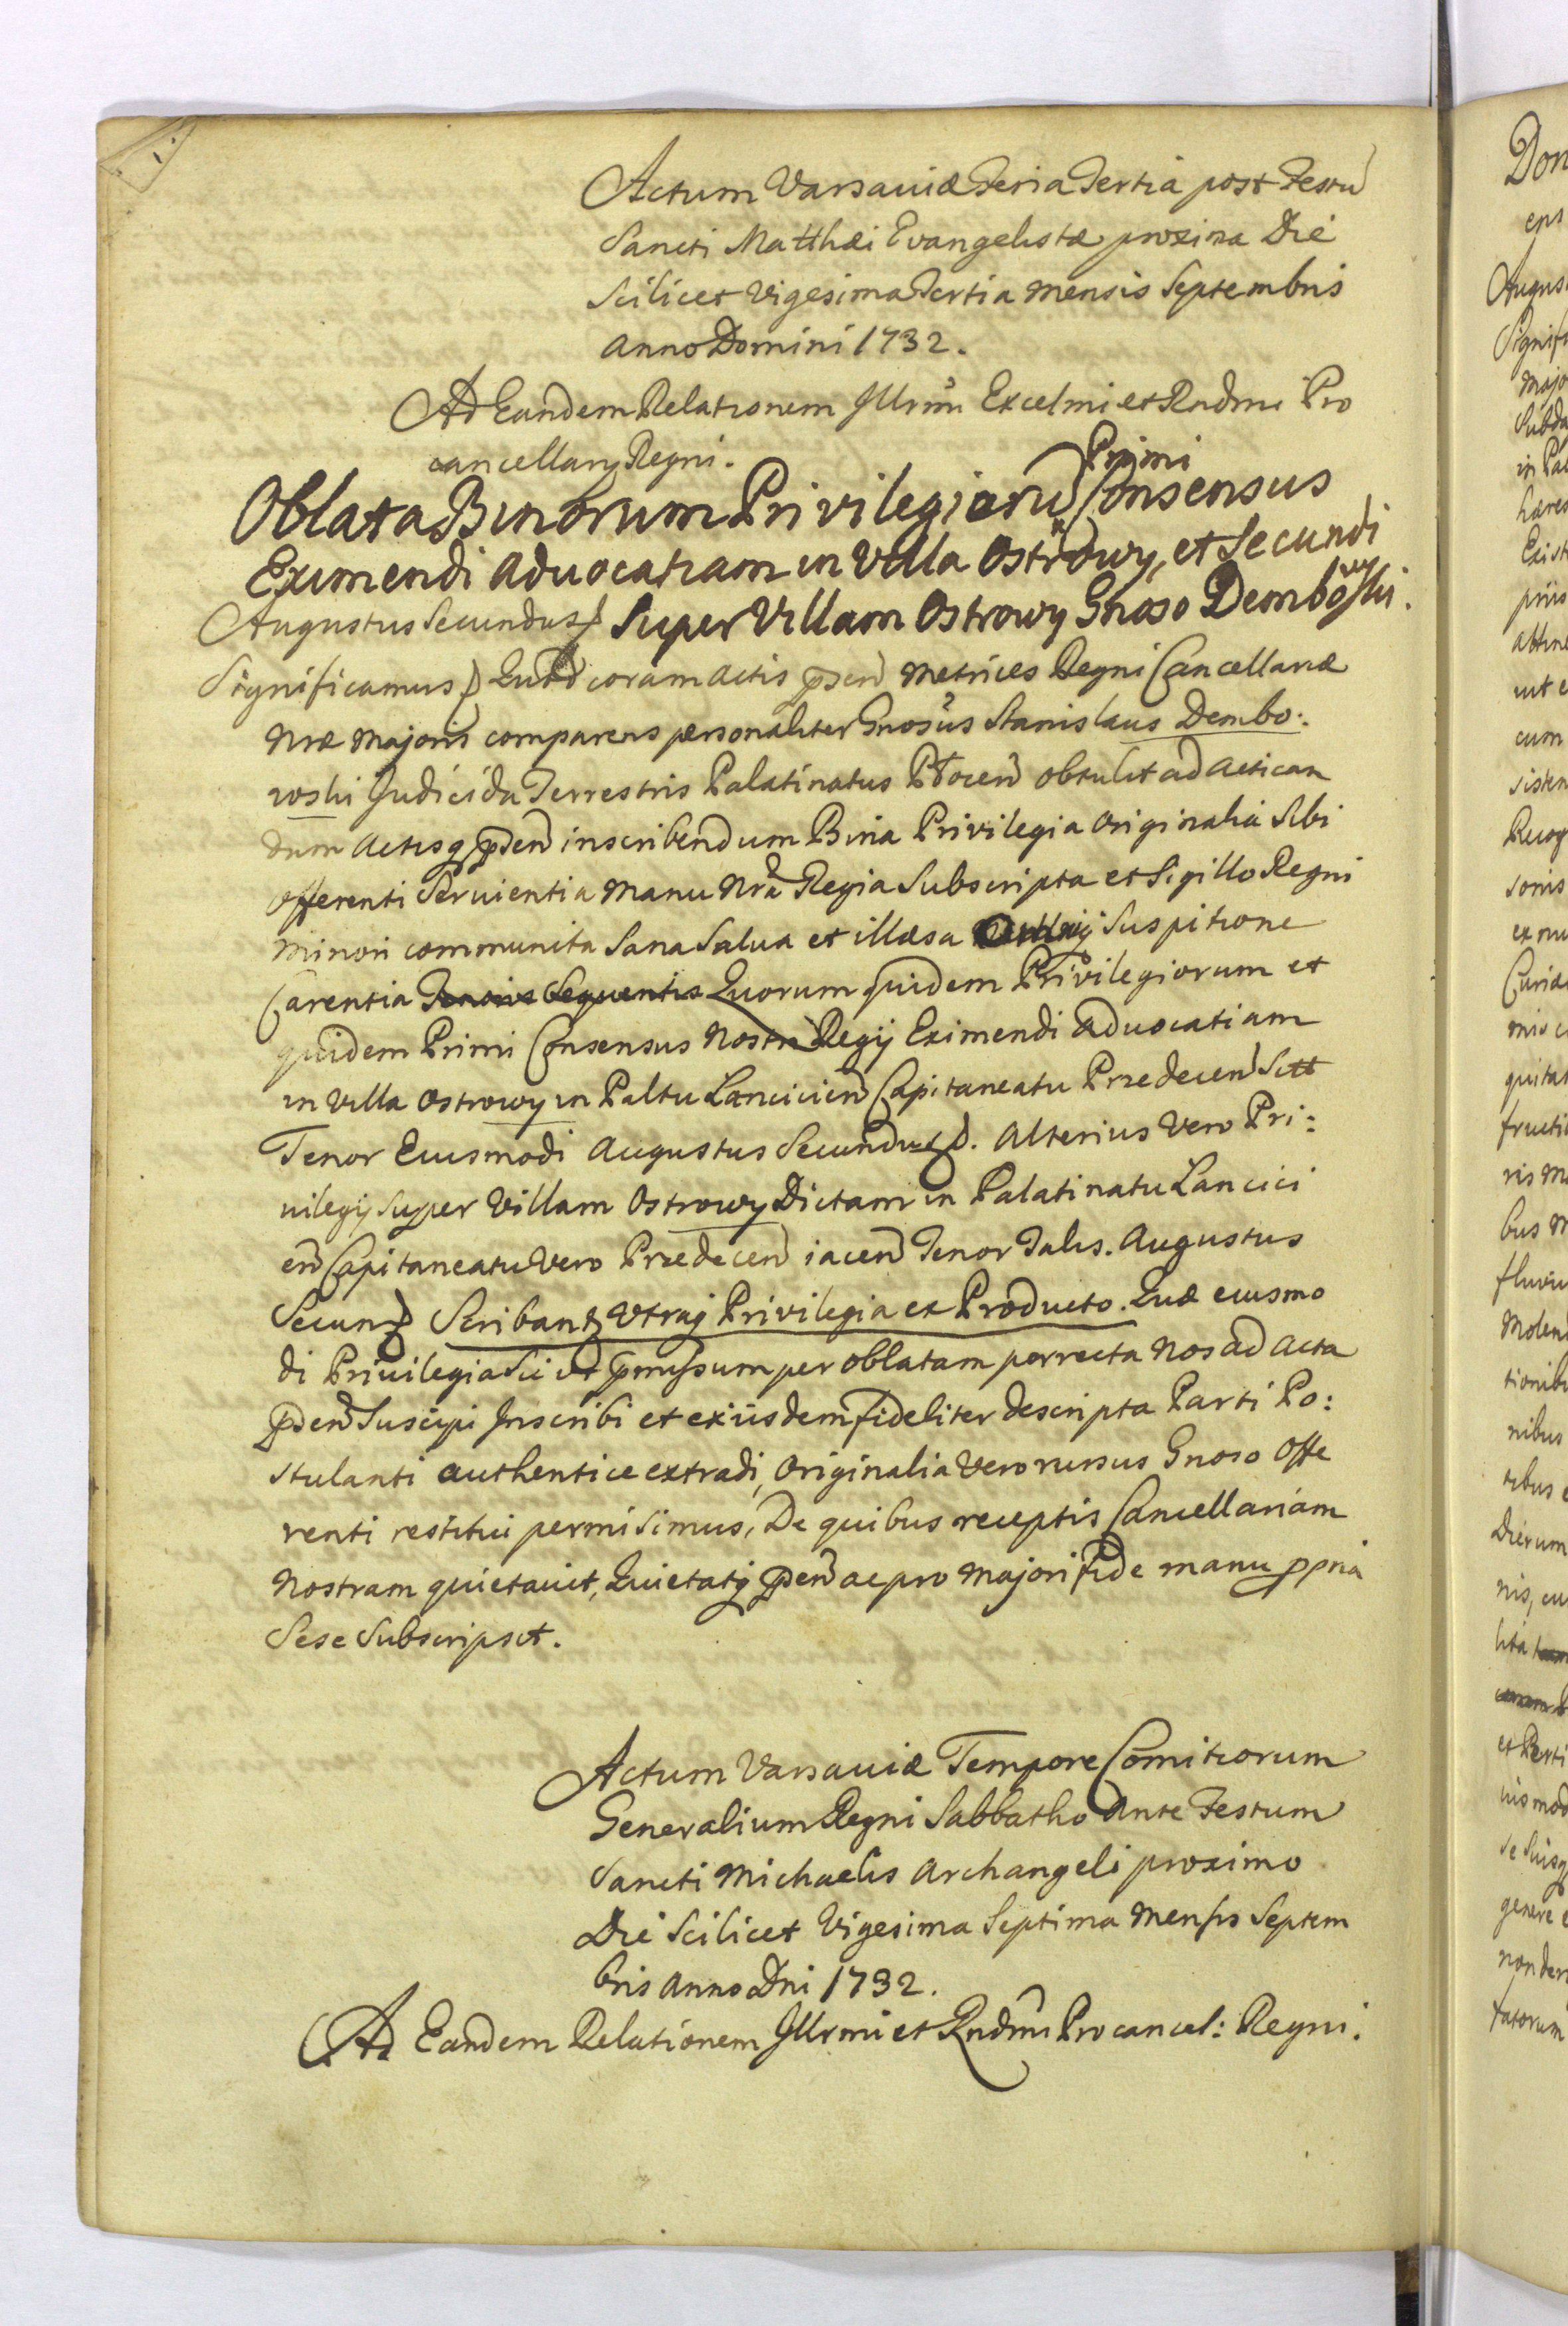 Actum Varsaviæ Feria Tertia post Festu
Sancti Matthæi Evangelistæ proxima Die
Scilicet Vigesima Tertia mensis Septembris
Anno Domini 1732.
Ad Eandem Relationem Illrmi Excelmi et Rndmi Pro
cancellarij Regni.
Primi
Oblata Binorum Privilegiorū Consensus
Eximendi Advocatiam in Villa Ostrowy, et Secundi
Augustus Secundus Super Villam Ostrowy Gnoso Dembowski.
Significamus Quod coram Actis psen Metrices Regni Cancellariæ
Nræ Majoris comparens personaliter Gnosus Stanislaus Dembo:
wski Judicida Terrestris Palatinatus Ptocen obtulit ad Actican
dum Actisq psen inscribendum Bina Privilegia Originalia Sibi
Offerenti Servientia Manu Nra Regia Subscripta et Sigillo Regni
Minori communita Sana Salva et illæsa Suspitione
Carentia Tenoris Sequentis Quorum quidem Privilegiorum et
quidem Primi Consensus Nostri Regij Eximendi Advocatiam
in Villa Ostrowy in Paltu Lancicien Capitaneatu Przedecen Sitt
Tenor Eiusmodi Augustus Secundus. Alterius Vero Pri:
vilegij Super Villam Ostrowy Dictam in Palatinatu Lancici
en Capitaneatu Vero Przedecen iacen Tenor Talis. Augustus
Secun Scribant Utraq Privilegia ex Producto. Quæ eiusmo
di Privilegia Sic ut pmissum per Oblatam porrecta Nos ad Acta
psen Suscipi Inscribi et exiisdem fideliter descripta Parti Po:
stulanti authentice extradi, Originalia Vero rursus Gnoso Offe
renti restitui permisimus, De quibus receptis Cancellariam
Nostram quietavit, Quietatq psen ac pro Majori fide manu ppria
Sese Subscripsit.
Actum Varsaviæ Tempore Comitiorum
Generalium Regni Sabbatho Ante Festum
Sancti Michaelis Archangeli proximo
Die Scilicet Vigesima Septima Mensis Septem
bris Anno Dni 1732.
Ad Eandem Relationem Illrmi et Rndmi Procancel: Regni.